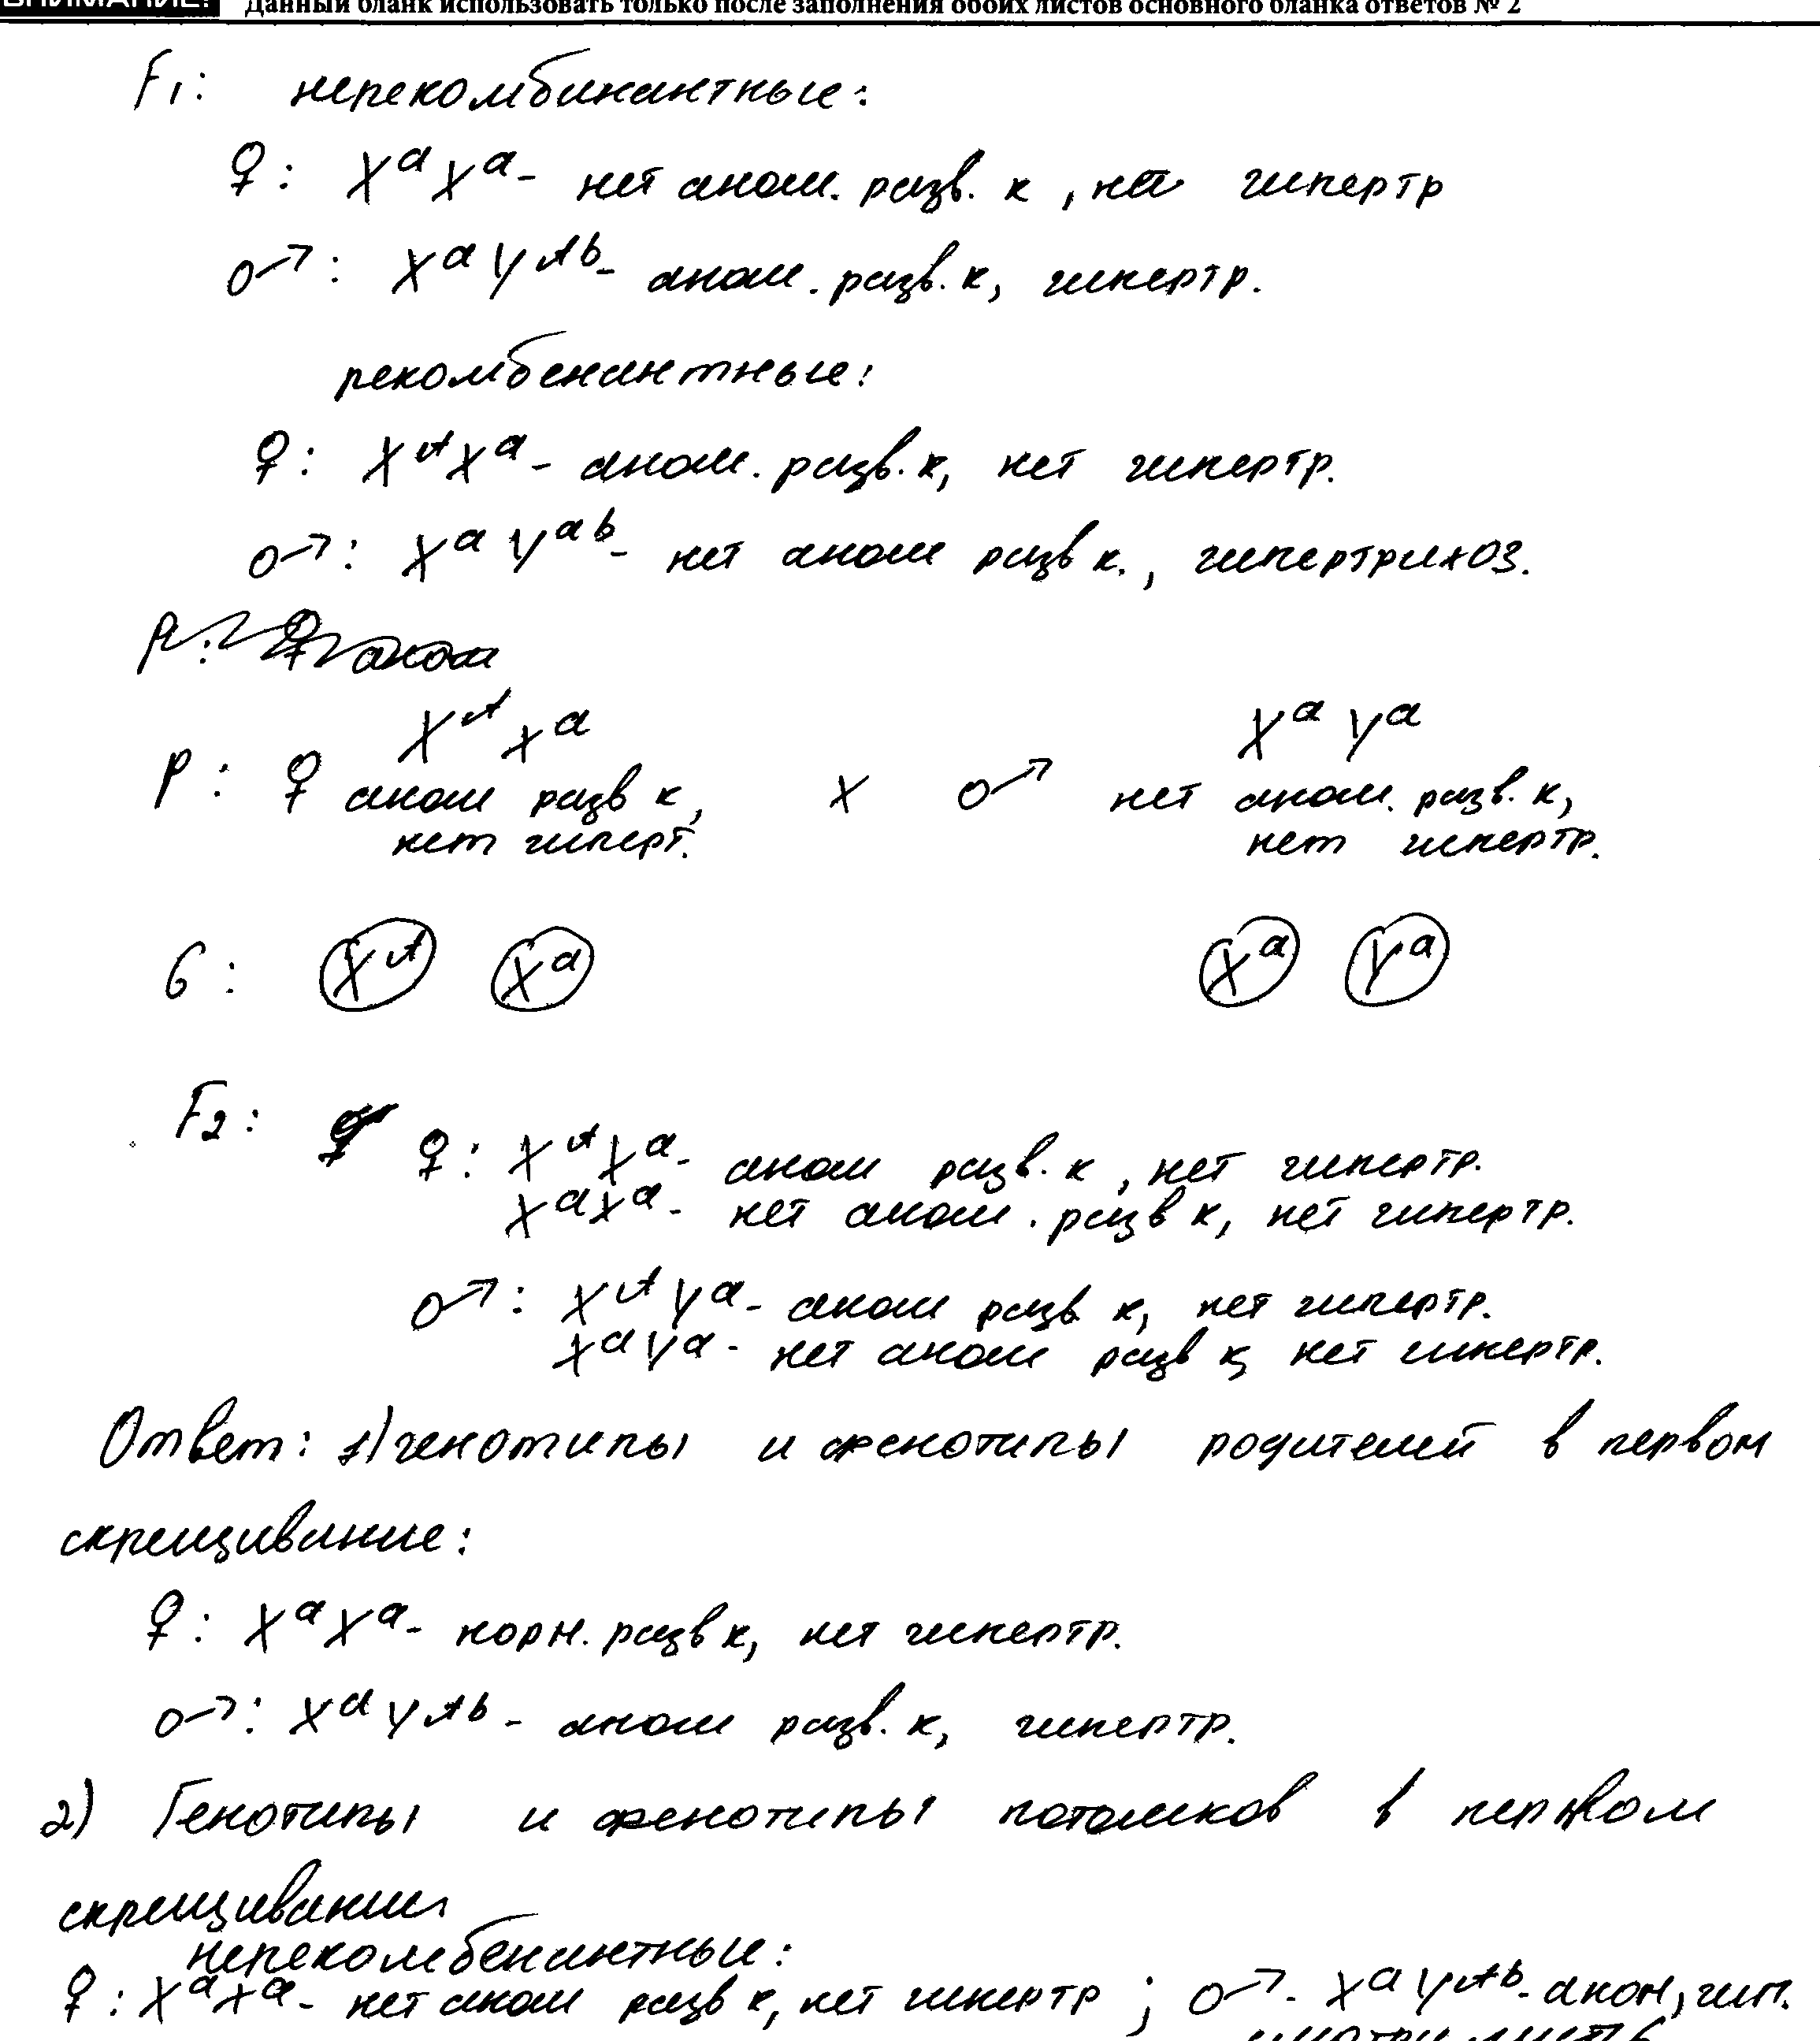 ВНИМАНИЕ! Данный бланк использовать только после заполнения обоих листов основного бланка ответов № 2
F₁: нерекомбинантные:
♀: XᵃXᵃ - нет аном. разв. к, нет гипертр
♂: XᵃYᴬᵇ - аном. разв. к, гипертр.
рекомбенантные:
♀: XᴬXᵃ - аном. разв. к, нет гипертр.
♂: XᵃYᵃᵇ - нет аном разв к., гипертрихоз.
XᴬXᵃ XᵃYᵃ
P: ♀ аном разв к, х ♂ нет аном. разв. к,
нет гиперт. нет гипертр.
G: Xᴬ Xᵃ Xᵃ Yᵃ
F₂: ♀: XᴬXᵃ - аном разв. к, нет гипертр.
XᵃXᵃ - нет аном. разв к, нет гипертр.
♂: XᴬYᵃ - аном разв к, нет гипертр.
XᵃYᵃ - нет аном разв к, нет гипертр.
Ответ: 1) генотипы и фенотипы родителей в первом
скрещивание:
♀: XᵃXᵃ - норм. разв к, нет гипертр.
♂: XᵃYᴬᵇ - аном разв. к, гипертр.
2) Генотипы и фенотипы потомков в первом
скрещивании
нерекомбенантные:
♀: XᵃXᵃ - нет аном разв к, нет гипертр ; ♂ - XᵃYᴬᵇ - аном, гип.
смотри лист 6